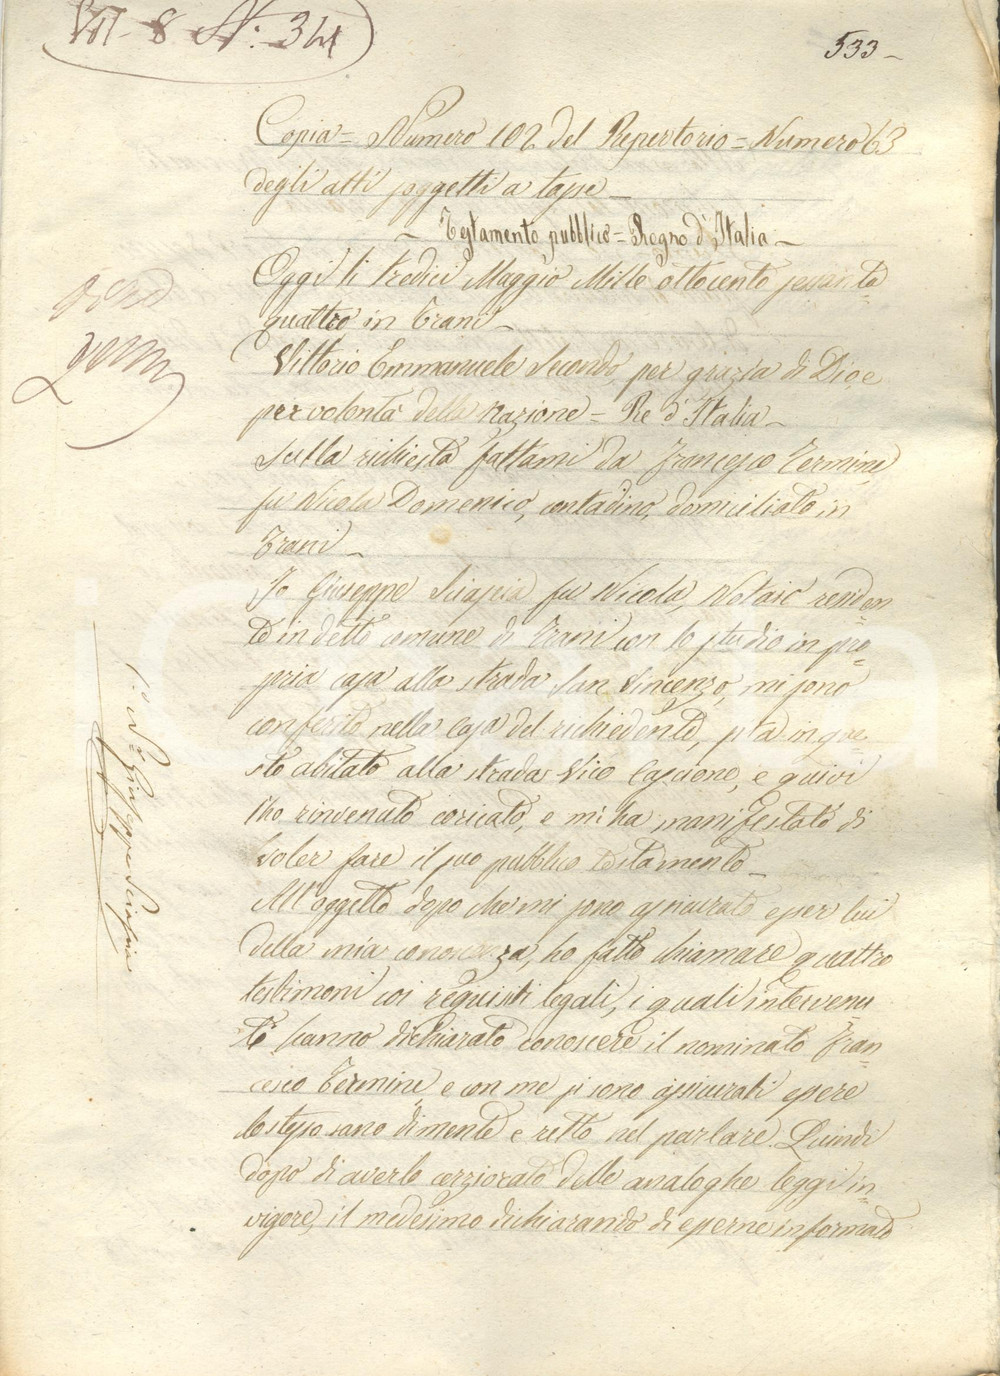 Vol. 8 N. 341
533
Copia = Numero 102 del Repertorio = Numero 63
degli atti soggetti a tasse
Testamento pubblico = Regno d'Italia
Oggi li tredici Maggio Mille ottocento sessanta=
quattro in Trani
Vittorio Emmanuele Secondo, per grazia di Dio, e
per volontà della Nazione = Re d'Italia
Sulla richiesta fattami da Francesco Termine
fu Nicola Domenico, contadino, domiciliato in
Trani
Io Giuseppe Sciascia fu Nicola, Notaio residen=
te in detto comune di Trani con lo studio in pro=
pria casa alla strada San Vincenzo, mi sono
conferito nella casa del richiedente, sita in que=
sto abitato alla strada Vico Cascione, e quivi
l'ho rinvenuto coricato, e mi ha manifestato di
voler fare il suo pubblico testamento
All'oggetto dopo che mi sono assicurato esser lui
della mia conoscenza, ho fatto chiamare quattro
testimoni coi requisiti legali, i quali intervenu=
ti hanno dichiarato conoscere il nominato Fran=
cesco Termine, e con me si sono assicurati essere
lo stesso sano di mente e retto nel parlare. Quindi
dopo di averlo cerziorato delle analoghe leggi in
vigore, il medesimo dichiarando di esserne informato
Nr Giuseppe Sciascia